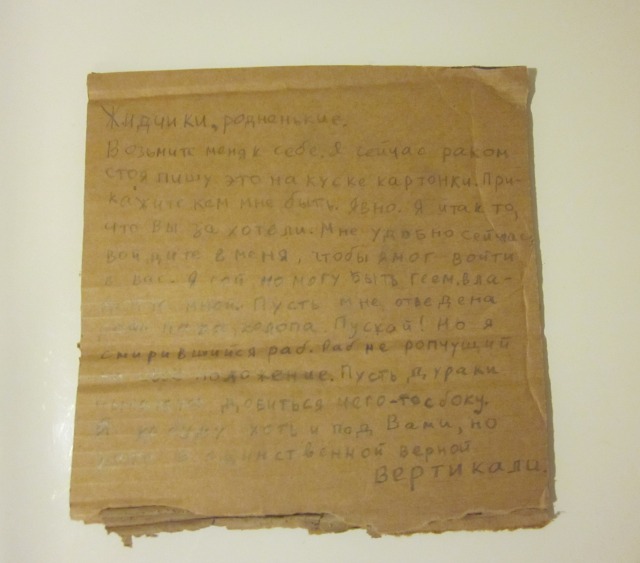 Жидчики, родненькие.
Возьмите меня к себе. Я сейчас раком
стоя пишу это на куске картонки. При-
кажите кем мне быть. Явно. Я итак то,
что Вы захотели. Мне удобно сейчас,
войдите в меня, чтобы я мог войти
в Вас. Я сам не могу быть всем. Вла-
мной. Пусть мне отведена
холопа. Пускай! Но я
смирившийся раб. Раб не ропчущий
положение. Пусть дураки
добиться чего-то сбоку.
Я буду хоть и под Вами, но
единственной верной
вертикали.